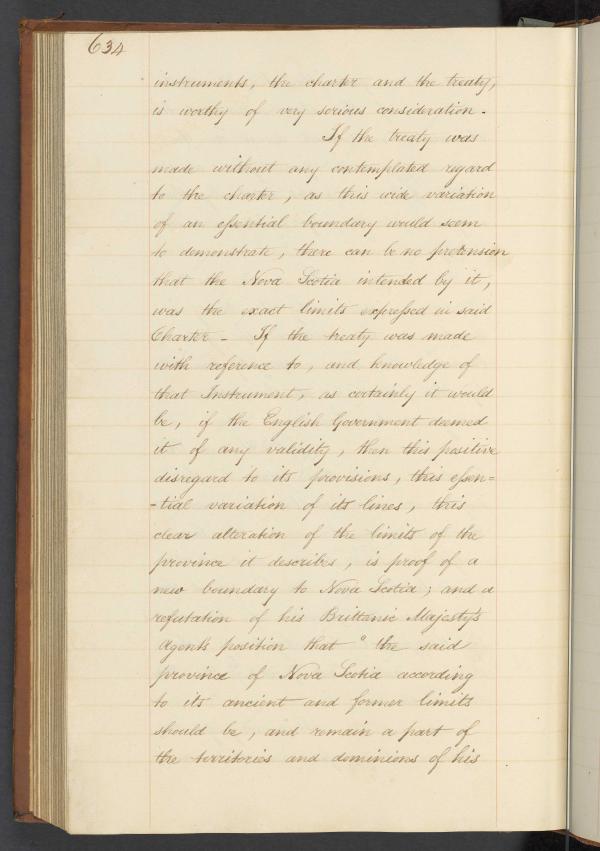 634
instruments, the charter and the treaty,
is worthy of very serious consideration.
If the treaty was
made without any contemplated regard
to the charter, as this wide variation
of an essential boundary would seem
to demonstrate, there can be no pretension
that the Nova Scotia intended by it,
was the exact limits expressed in said
Charter - If the treaty was made
with reference to, and knowledge of
that Instrument, as certainly it would
be, if the English Government deemed
it of any validity, then this positive
disregard to its provisions, this essen=
-tial variation of its lines, this
clear alteration of the limits of the
province it describes, is proof of a
new boundary to Nova Scotia; and a
refutation of his Brittanic Majesty's
Agents position that "the said
province of Nova Scotia according
to its ancient and former limits
should be, and remain a part of
the territories and dominions of his